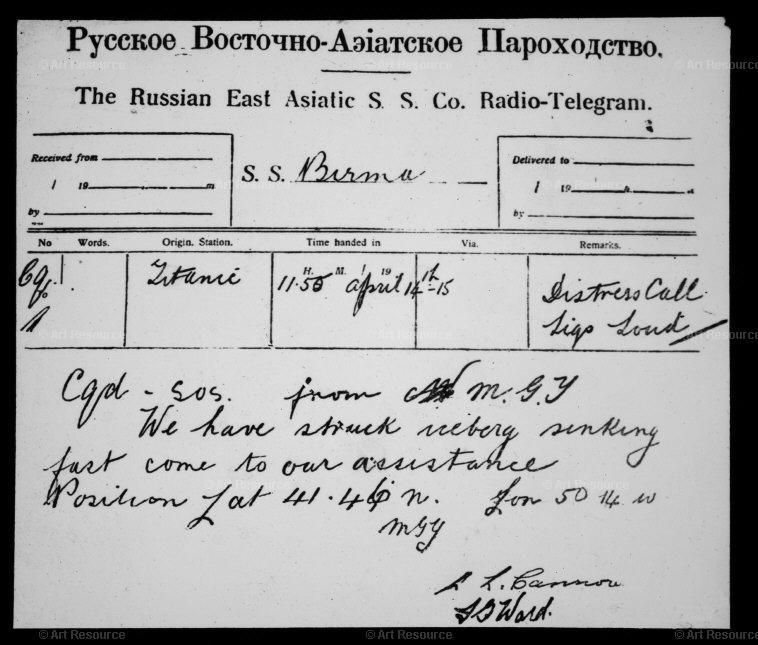 Русское Восточно-Азіатское Пароходство.
The Russian East Asiatic S. S. Co. Radio-Telegram.
Received from
/ 19 m
by
S. S. Birma
Delivered to
/ 19
by
No Words. Origin. Station. Time handed in Via. Remarks.
Cqd. Titanic H. M. / 19 11.50 April 14th-15 Distress Call
1 Sigs Loud
Cqd - SOS. from M.G.Y
We have struck iceberg sinking
fast come to our assistance
Position Lat 41.46 n. Lon 50 14 w
MGY
L. Cannon
Ward.
© Art Resource